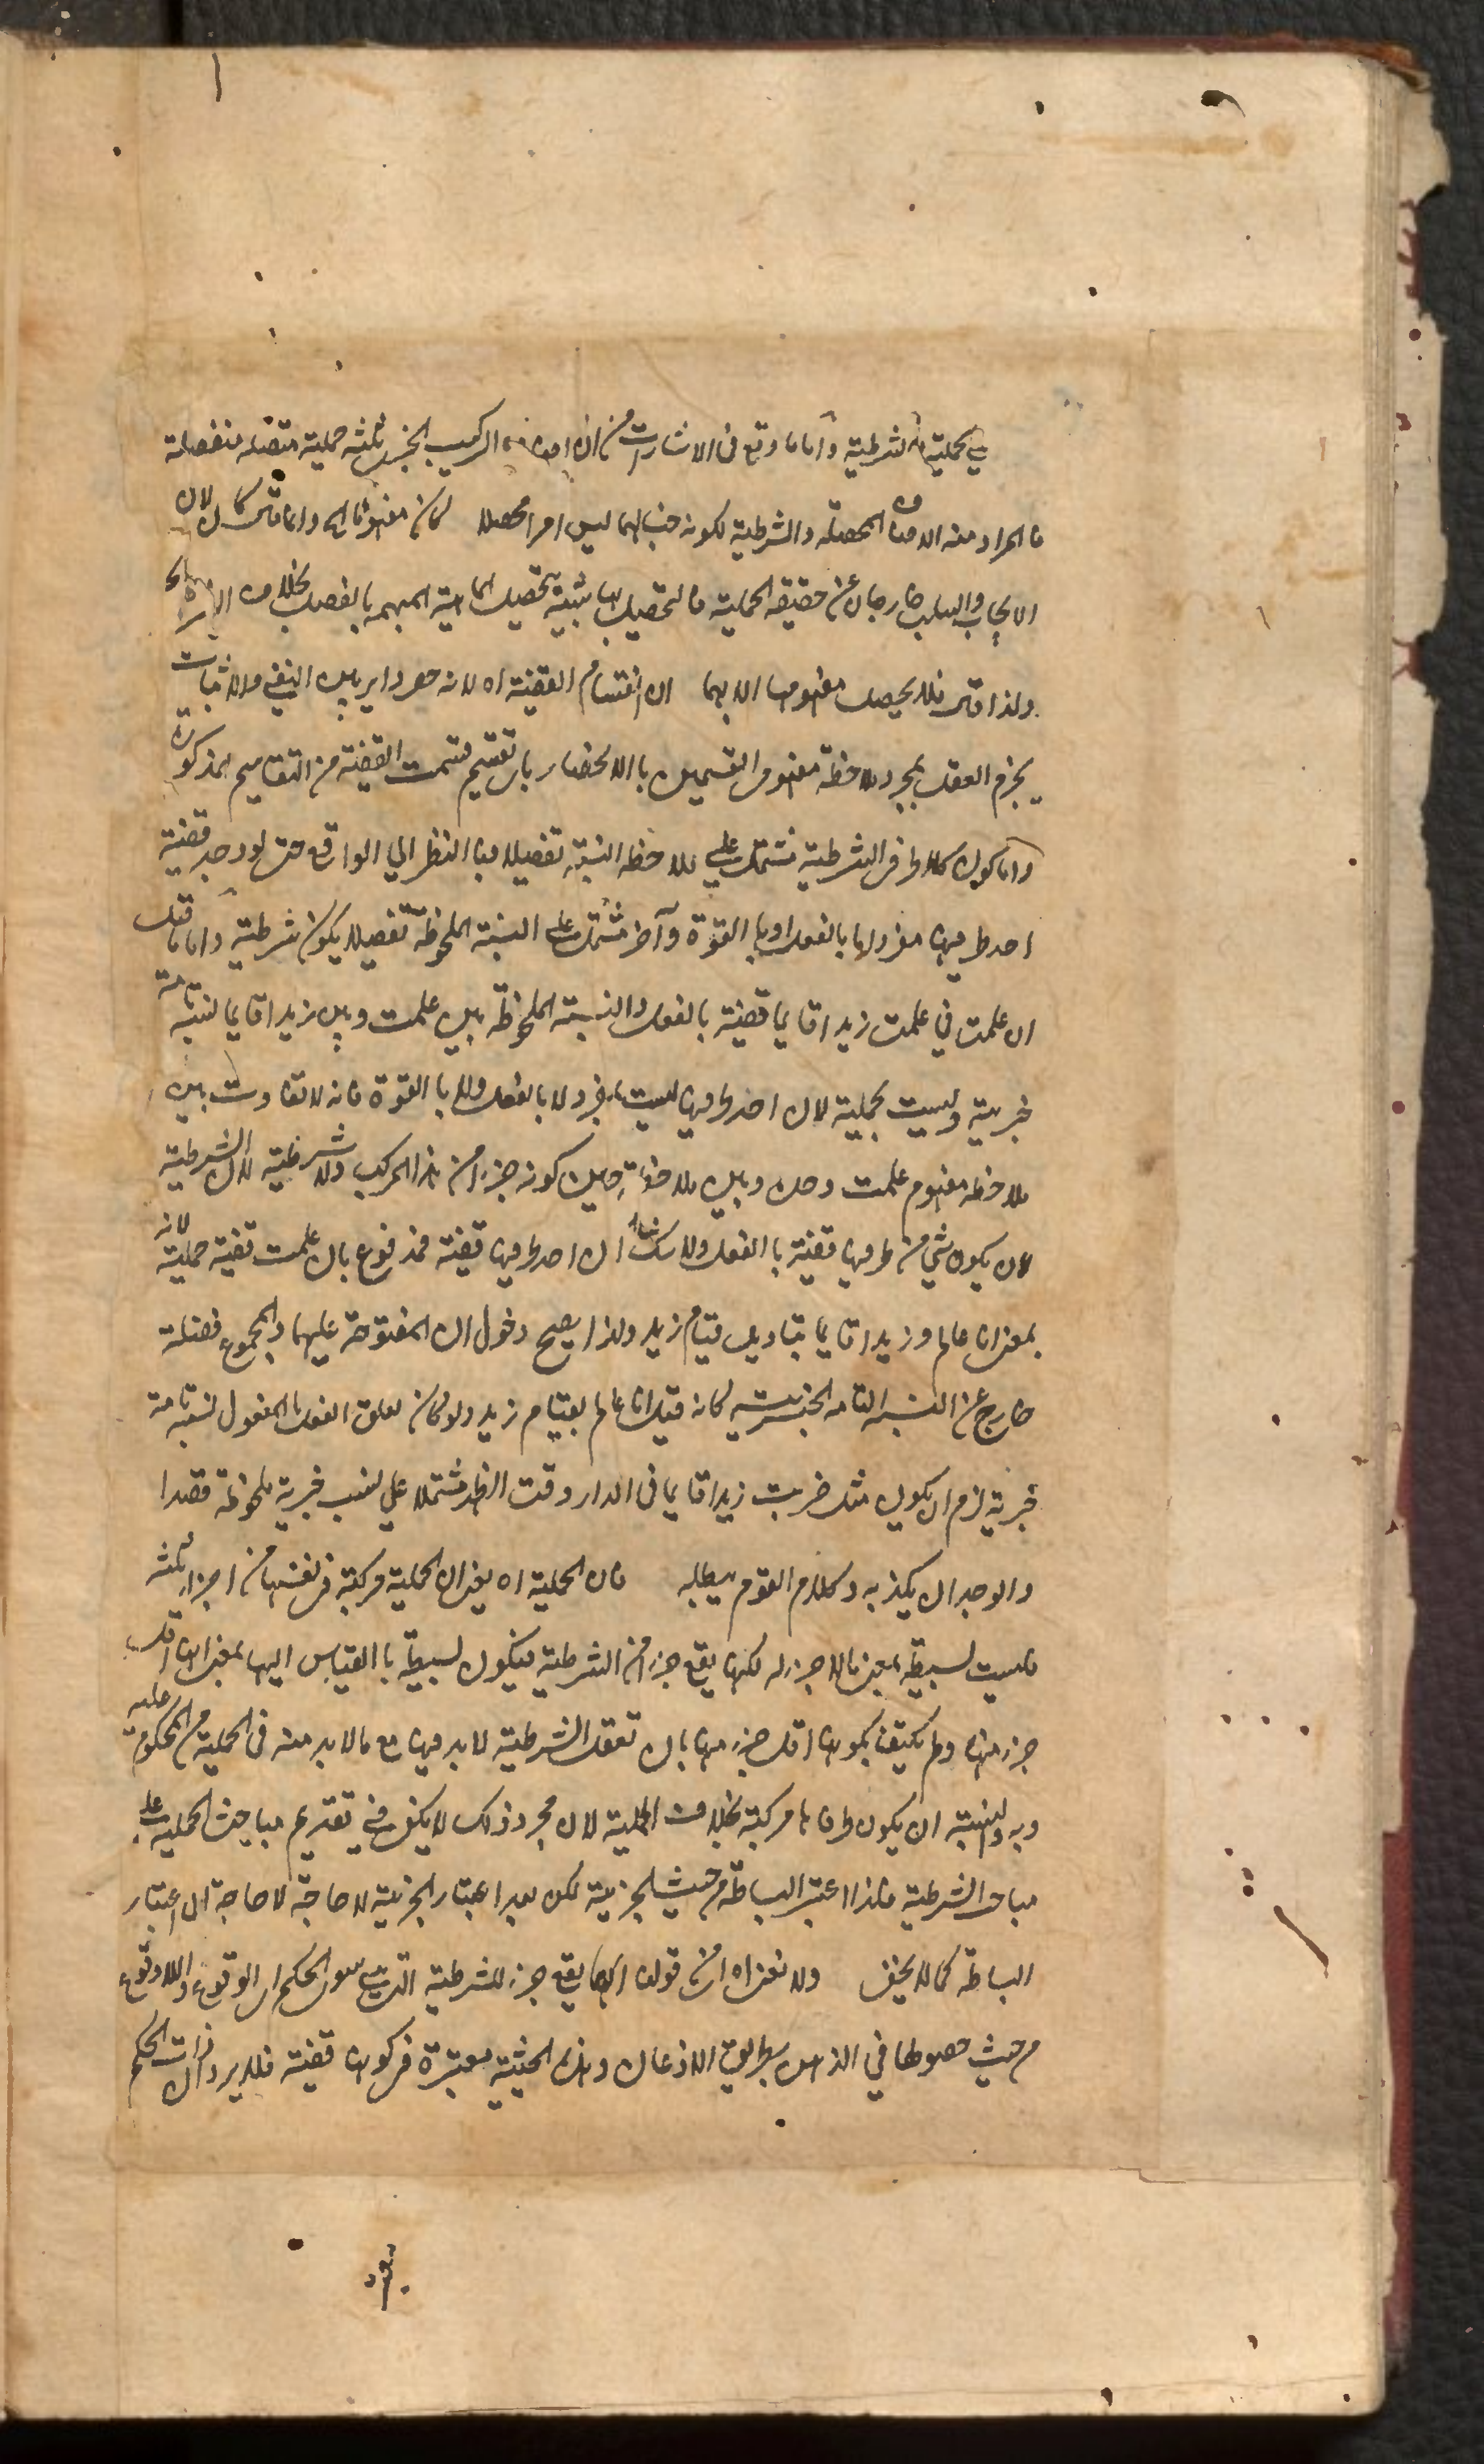 هي الحملية والشرطية واما ما وقع في الاشارات من ان اصناف التركيب الخبري ثلثة حملية متصلة منفصلة
فالمراد منه الاصناف المحصلة والشرطية لكونه جنسا لهما ليس امرا محصلا لان مفهومها اه وانما قال كان لان
الايجاب والسلب خارجان عن حقيقة الحملية فالتحصيل بهما شبيه بتحصيل الماهية المبهمة بالفصل بخلاف
ولذا قال فلا يحصل مفهومها الا بهما ان انقسام القضية اه لانه حصر دائر بين النفي والاثبات
يجزم العقل بمجرد ملاحظة مفهوم القسمين بالانحصار باي تقسيم قسمت القضية من التقاسيم المذكورة
واما كون كلا طرفي الشرطية مشتملا على ملاحظة النسبة تفصيلا فبالنظر الى الواقع حتى لو وجد قضية
احد طرفيها مفرد اما بالفعل او بالقوة وآخر مشتمل على النسبة الملحوظة تفصيلا يكون شرطية واما ما قيل
ان علمت في علمت زيدا قايما قضية بالفعل والنسبة الملحوظة بين علمت وبين زيدا قايما نسبة تامة
خبرية وليست بحملية لان احد طرفيها ليست بمفرد لا بالفعل ولا بالقوة فانه لا تفاوت بين
ملاحظة مفهوم علمت وحده وبين ملاحظته حين كونه جزءا من هذا المركب ولا شرطية لان الشرطية
لان يكون شيء من طرفيها قضية بالفعل ولا شك ان احد طرفيها قضية فمدفوع بان علمت قضية حملية لانه
بمعنى انا عالم وزيدا قايما بتاويل قيام زيد ولذا يصح دخول ان المفتوحة عليهما والمجموع فضلة
خارج عن النسبة التامة الخبرية كانه قيل انا عالم بقيام زيد ولو كان تعلق الفعل بالمفعول نسبة تامة
خبرية لزم ان يكون مثل ضربت زيدا قايما في الدار وقت الظهر مشتملا على نسب خبرية ملحوظة قصدا
والوجدان يكذبه وكلام القوم يبطله فان الحملية اه يعني ان الحملية مركبة في نفسها من اجزاء ثلثة
فليست بسيطة بمعنى ما لا جزء له لكنها يقع جزءا من الشرطية فيكون بسيطة بالقياس اليها بمعنى انها اقل
جزء منها ولم يكتف بكونها اقل جزء منها بان تعقل الشرطية لا بد فيها مع ما لا بد منه في الحملية من المحكوم عليه
وبه والنسبة ان يكون طرفاها مركبة بخلاف الحملية لان مجرد ذلك لا يكفي في تقديم مباحث الحملية على
مباحث الشرطية فلذا اعتبر البساطة من حيث الجزئية لكن بعد اعتبار الجزئية لا حاجة لا حاجة الى اعتبار
البساطة كما لا يخفى ولا نعني اه ان قولنا انها يقع جزء للشرطية التي هي سوى الحكم اي الوقوع واللاوقوع
من حيث حصولها في الذهن بطريق الاذعان وهذه الحيثية معتبرة في كونها قضية فلا يرد ان ذات الحكم